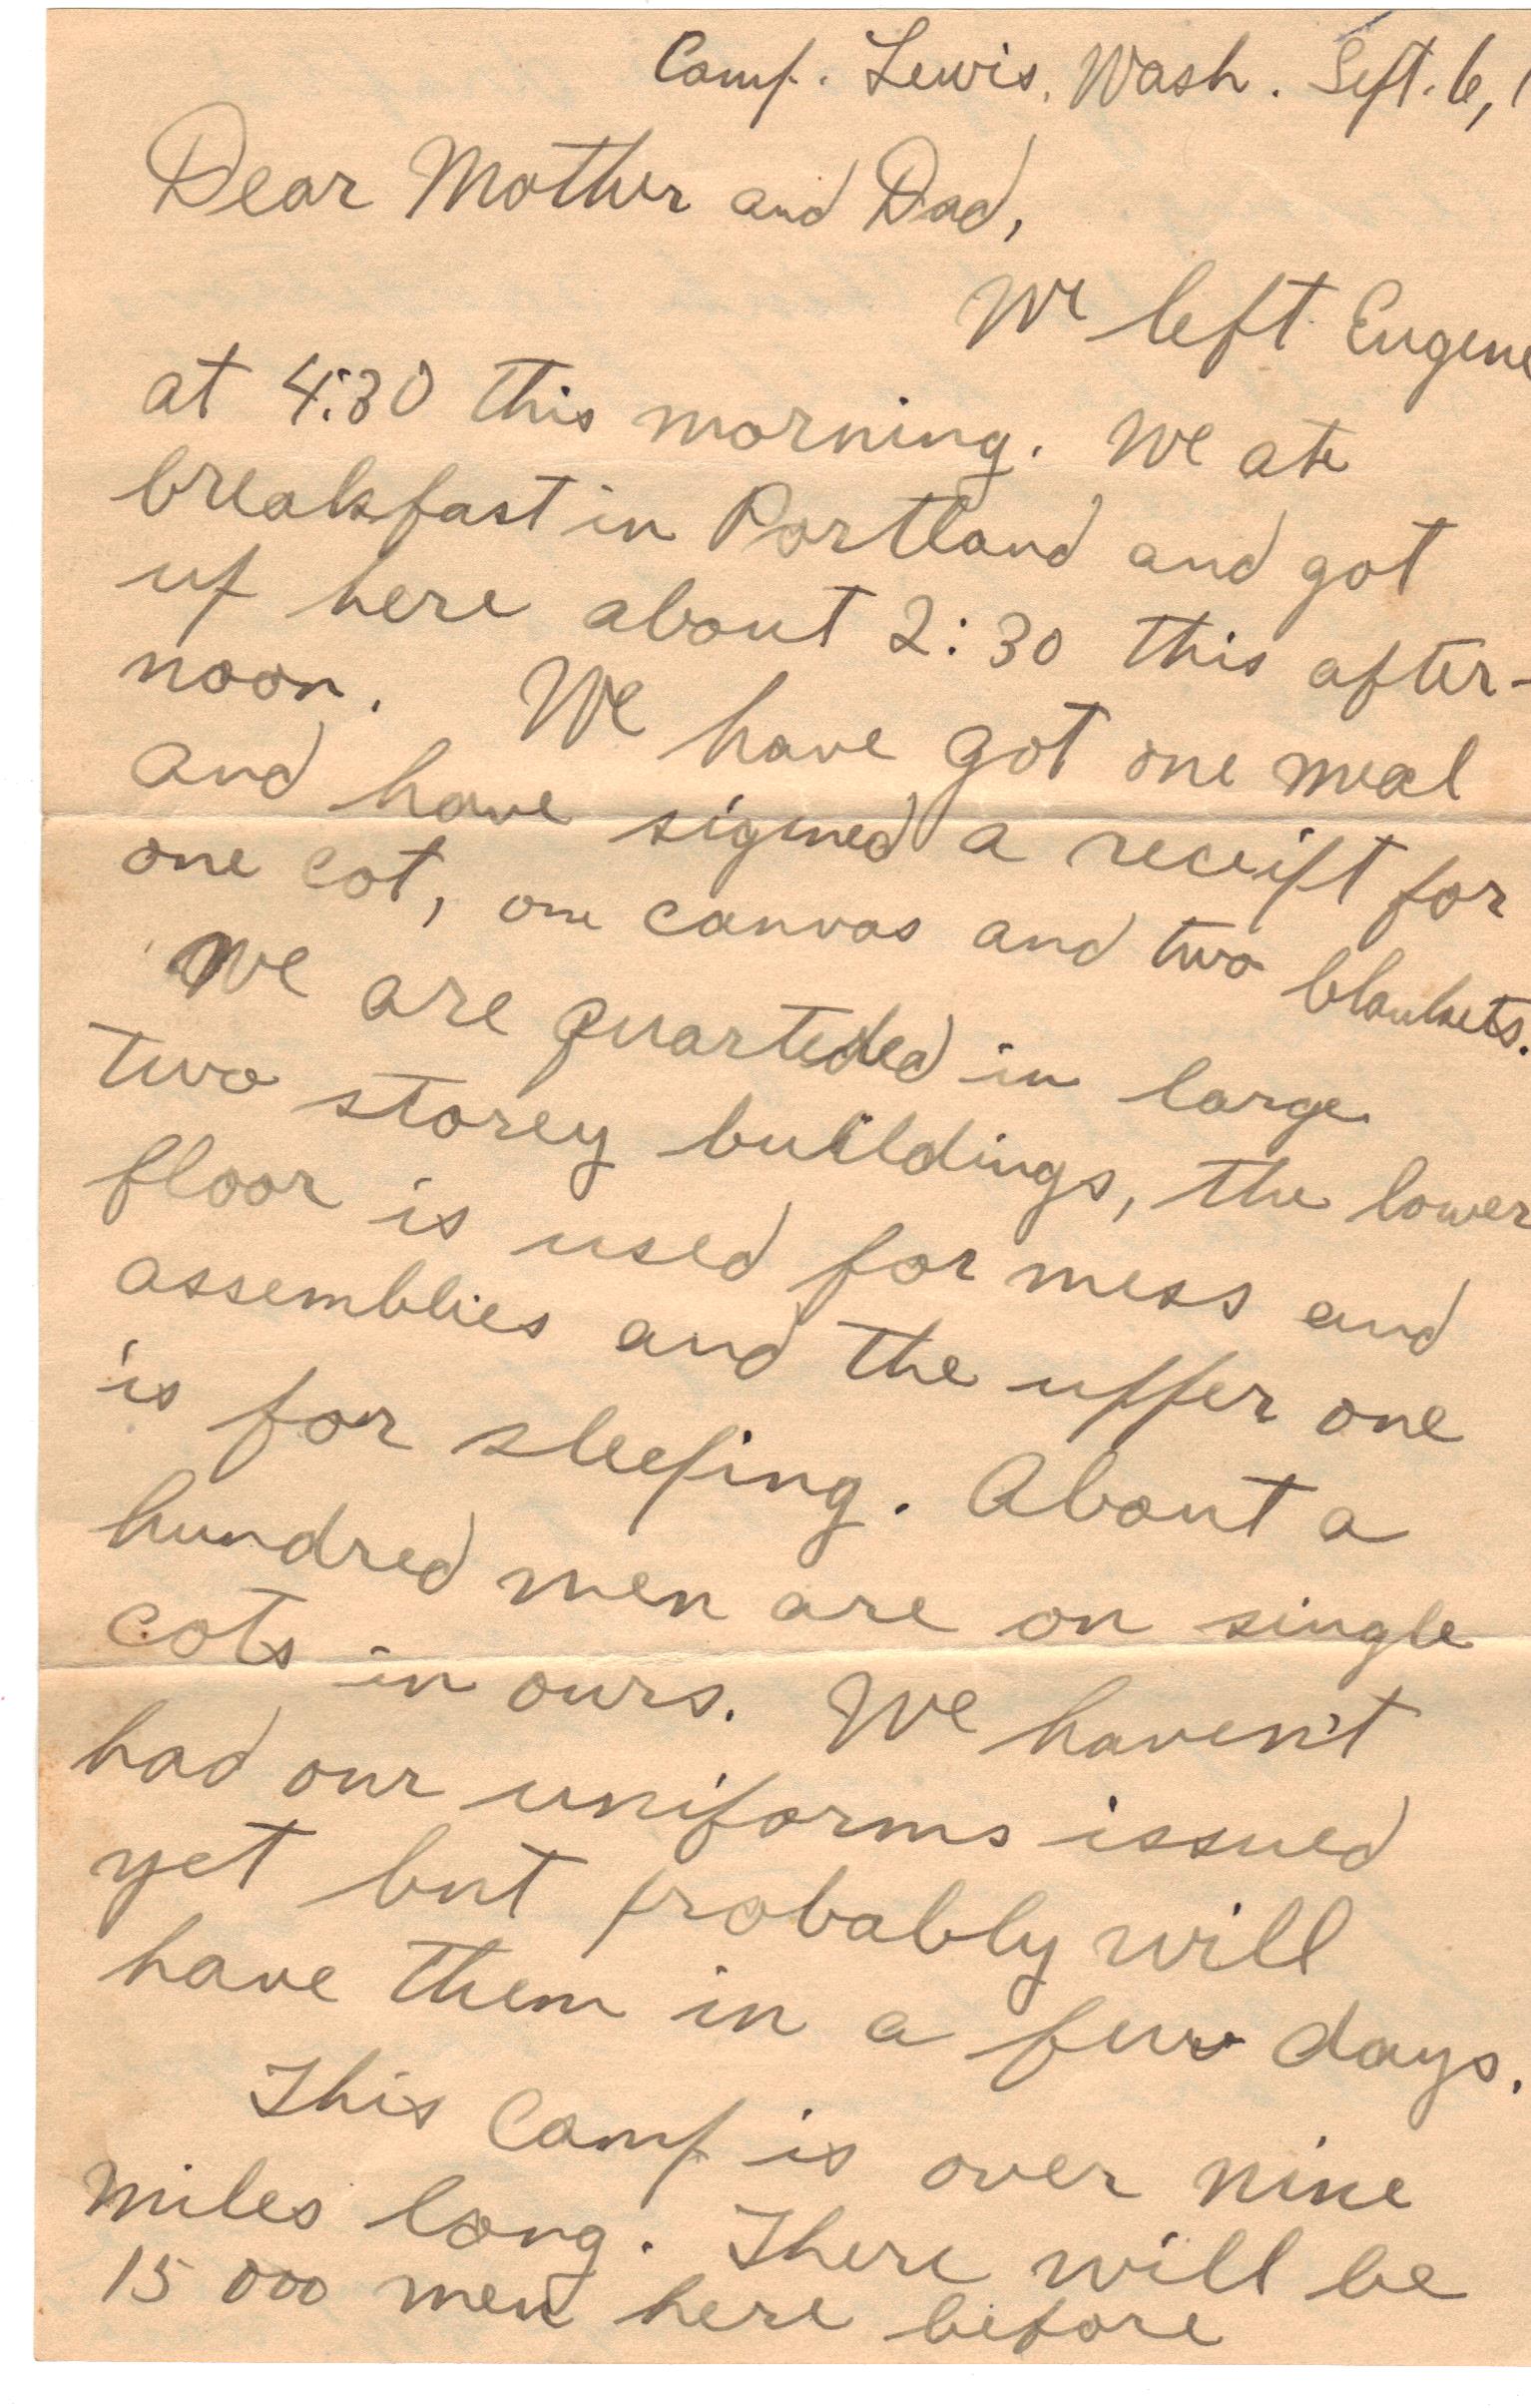 Camp. Lewis, Wash. Sept. 6, 1
Dear Mother and Dad,
We left Eugene
at 4:30 this morning. We ate
breakfast in Portland and got
up here about 2:30 this after-
noon. We have got one meal
and have signed a receipt for
one cot, one canvas and two blankets.
We are quarteded in large
two storey buildings, the lower
floor is used for mess and
assemblies and the upper one
is for sleeping. About a
hundred men are on single
cots in ours. We haven't
had our uniforms issued
yet but probably will
have them in a few days.
This Camp is over nine
miles long. There will be
15 000 men here before